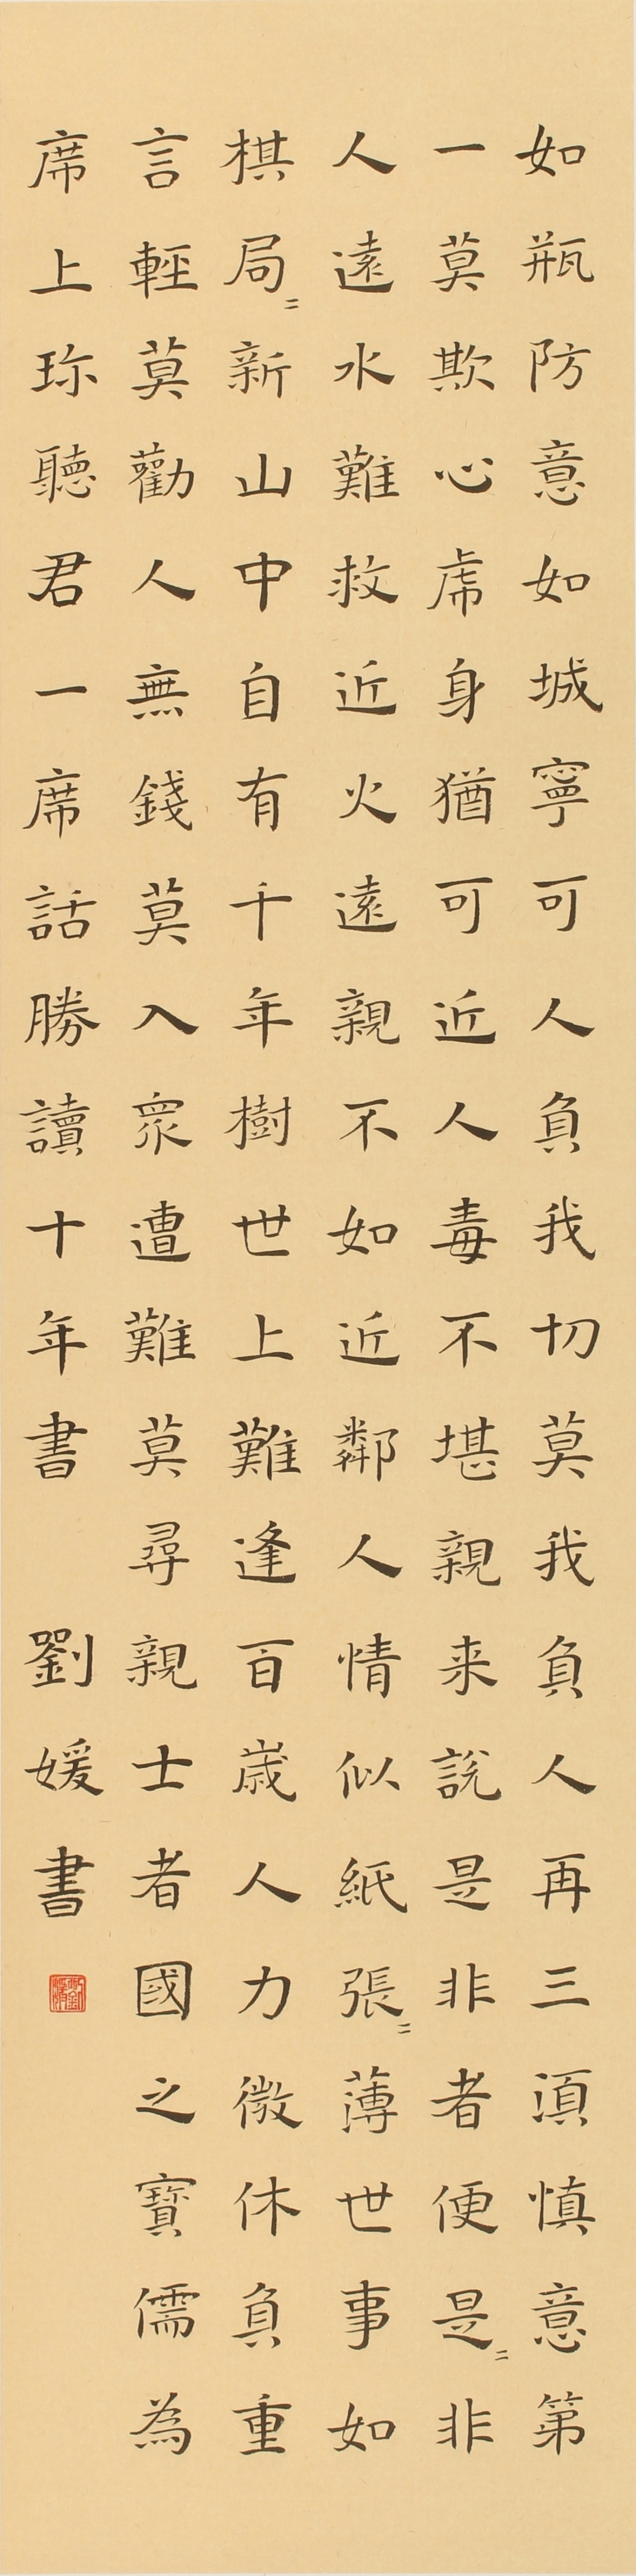 如瓶防意如城寧可人負我切莫我負人再三湏慎意第
一莫欺心虎身猶可近人毒不堪親来說是非者便是〻非
人遠水難救近火遠親不如近鄰人情似紙張〻薄世事如
棋局〻新山中自有千年樹世上難逢百歲人力微休負重
言輕莫勸人無錢莫入衆遭難莫尋親士者國之寶儒為
席上珎聽君一席話勝讀十年書 劉媛書